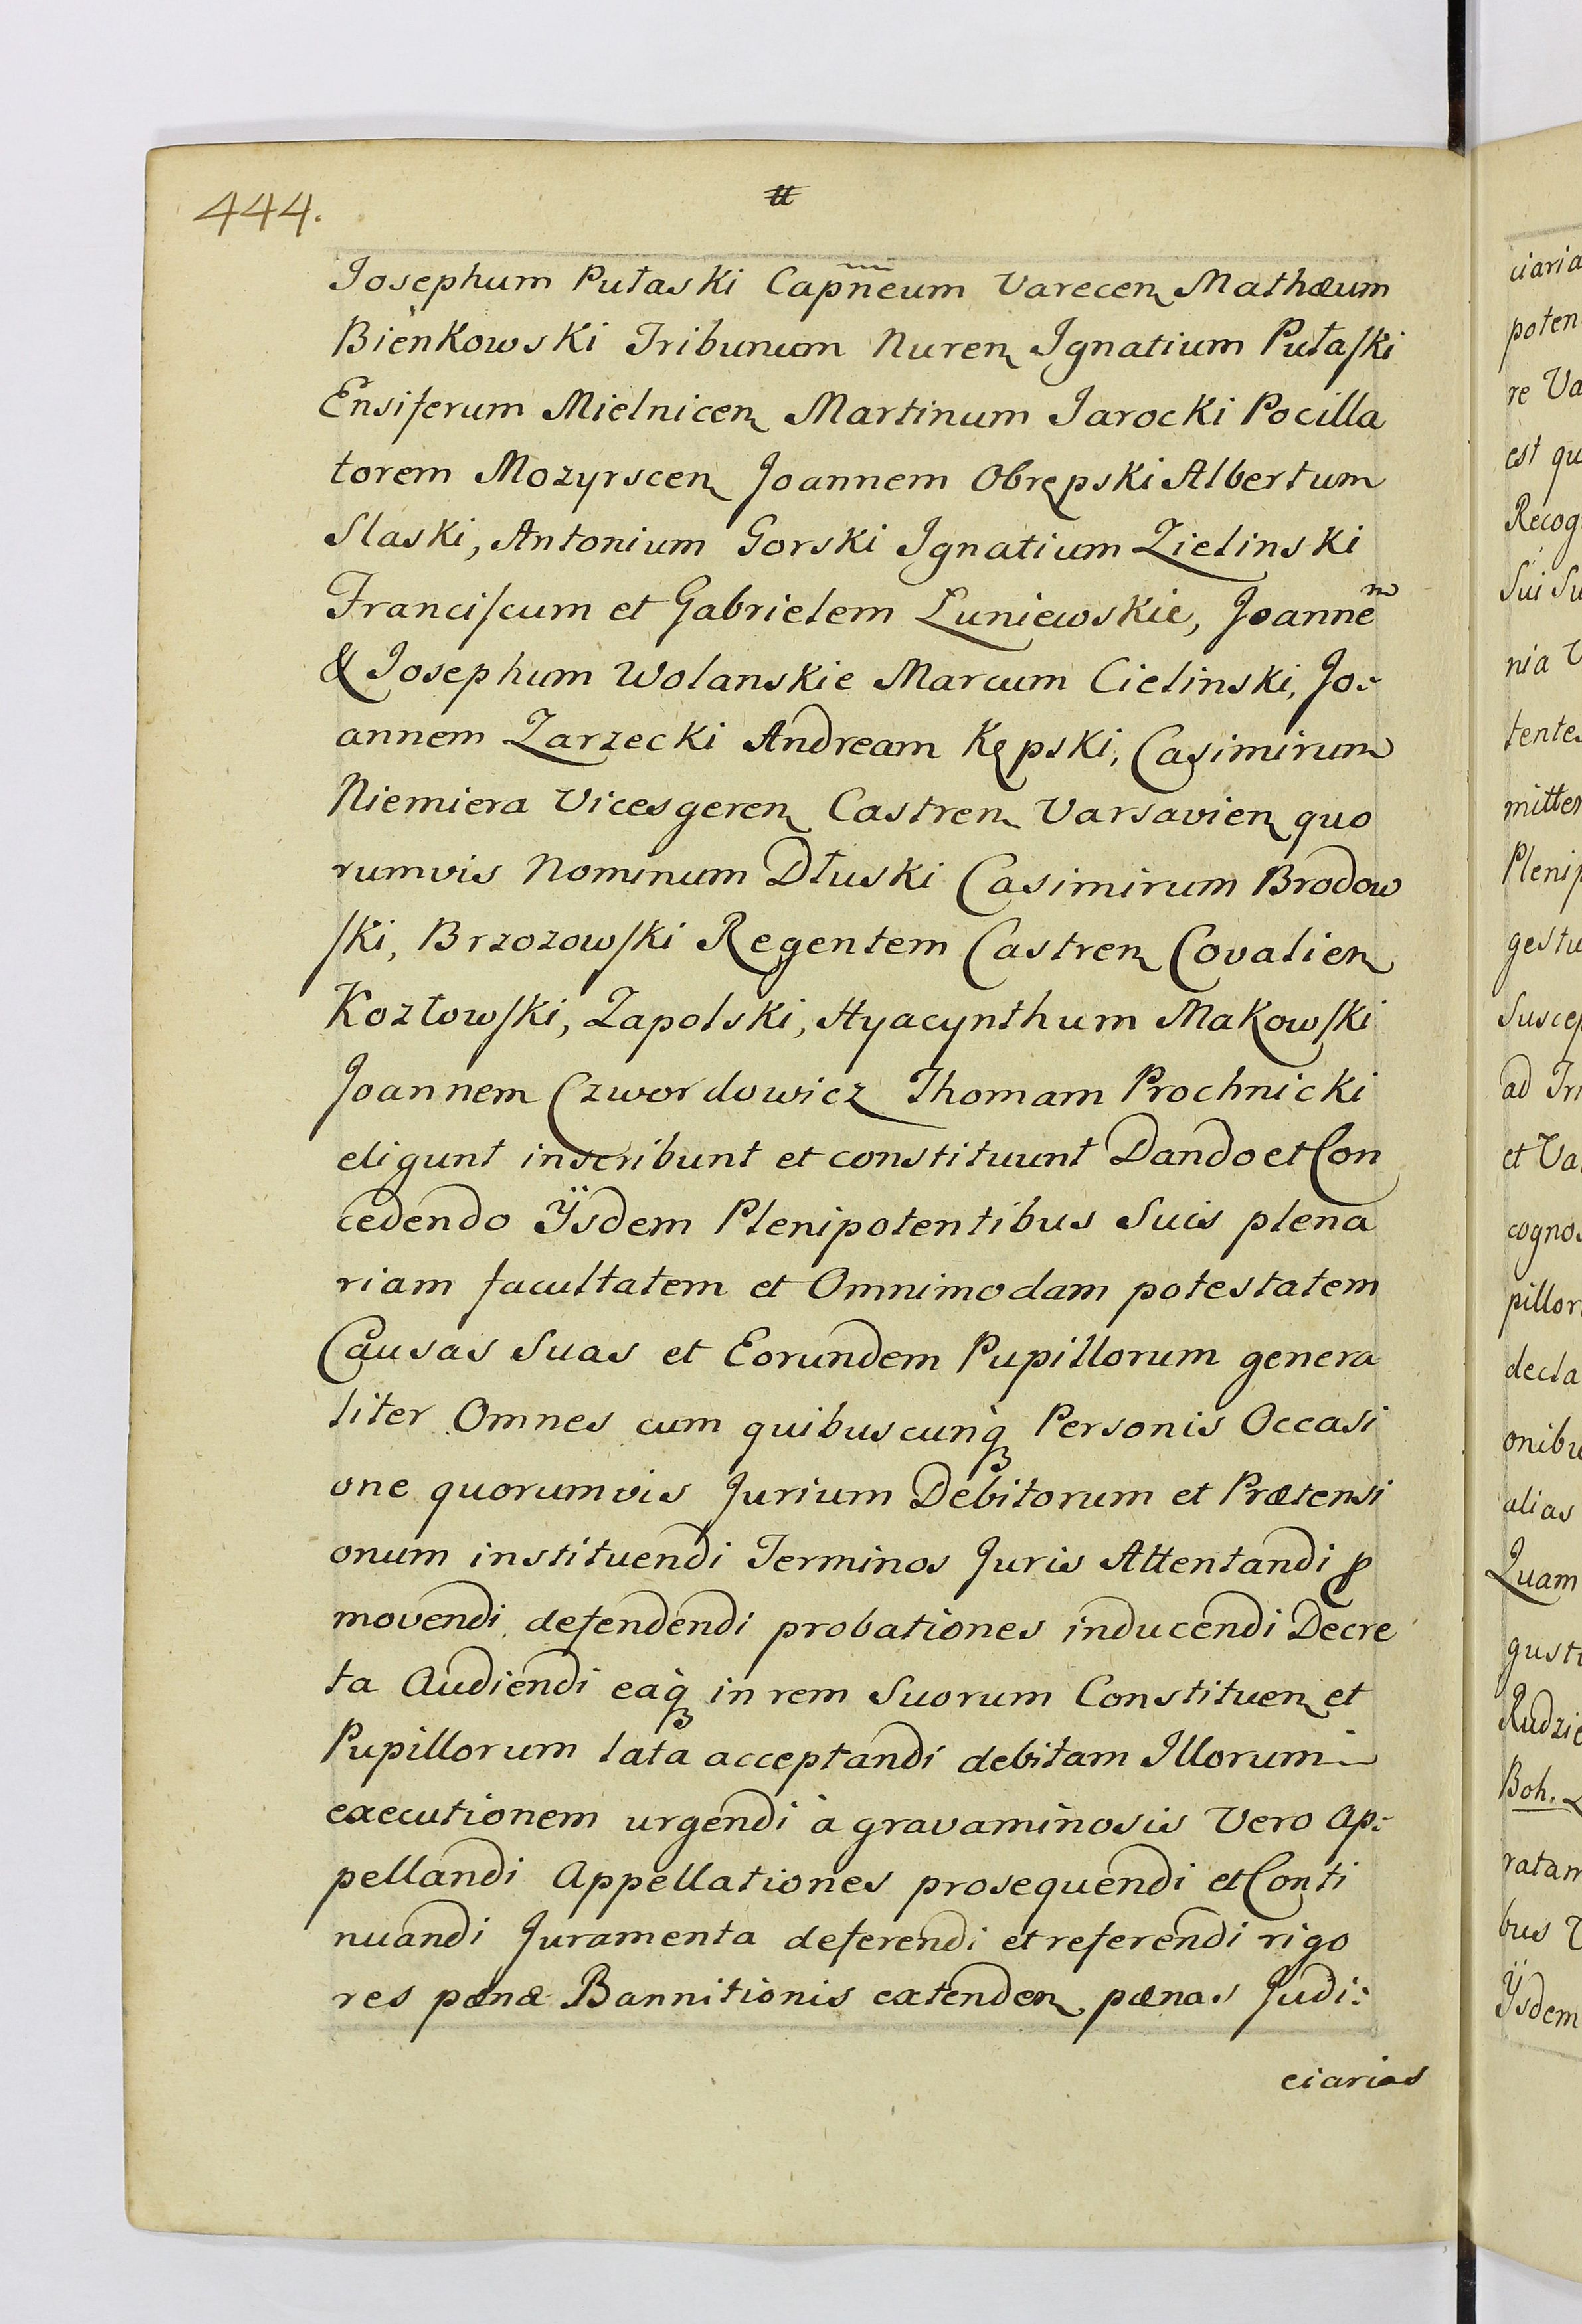 444.
Josephum Pułaski Capneum Varecen Mathæum
Bieńkowski Tribunum Nuren Ignatium Pułaſki
Ensiferum Mielnicen Martinum Jarocki Pocilla
torem Mozyrscen Joannem Obrępski Albertum
Slaski, Antonium Gorski Ignatium Zielinski
Franciſcum et Gabrielem Łuniewskie, Joannem
& Josephum Wolanskie Marcum Cielinski, Jo-
annem Zarzecki Andream Kępski, Casimirum
Niemiera Vicesgeren Castren Varsavien quo
rumvis Nominum Dłuski Casimirum Brodow
ſki, Brzozowſki Regentem Castren Covalien
Kozłowſki, Zapolski, Hyacynthum Makowſki
Joannem Czwordowicz Thomam Prochnicki
eligunt inscribunt et constituunt Dando et Con
cedendo Ÿsdem Plenipotentibus Suis plena
riam facultatem et Omnimodam potestatem
Causas Suas et Eorundem Pupillorum genera
liter Omnes cum quibuscunq́ Personis Occasi
one quorumvis Jurium Debitorum et Prætensi
onum instituendi Terminos Juris Attentandi ꝓ
movendi defendendi probationes inducendi Decre
ta Audiendi eaq́ in rem Suorum Constituen et
Pupillorum lata acceptandi debitam Illorum
executionem urgendi à gravaminosis Vero Ap-
pellandi Appellationes prosequendi et Conti
nuandi Juramenta deferendi et referendi rigo
res pœnæ Bannitionis extenden pœnas Judi-
ciarias
ciaria
poten
re Va
est qu
Recog
Sui Su
nia V
tentes
mitten
Plenip
gestu
Suscep
ad Tri
et Va
cognos
pillor
decla
onibu
alias
Quam
gusti
Rudzie
Boh.
ratam
bus
Ÿsdem